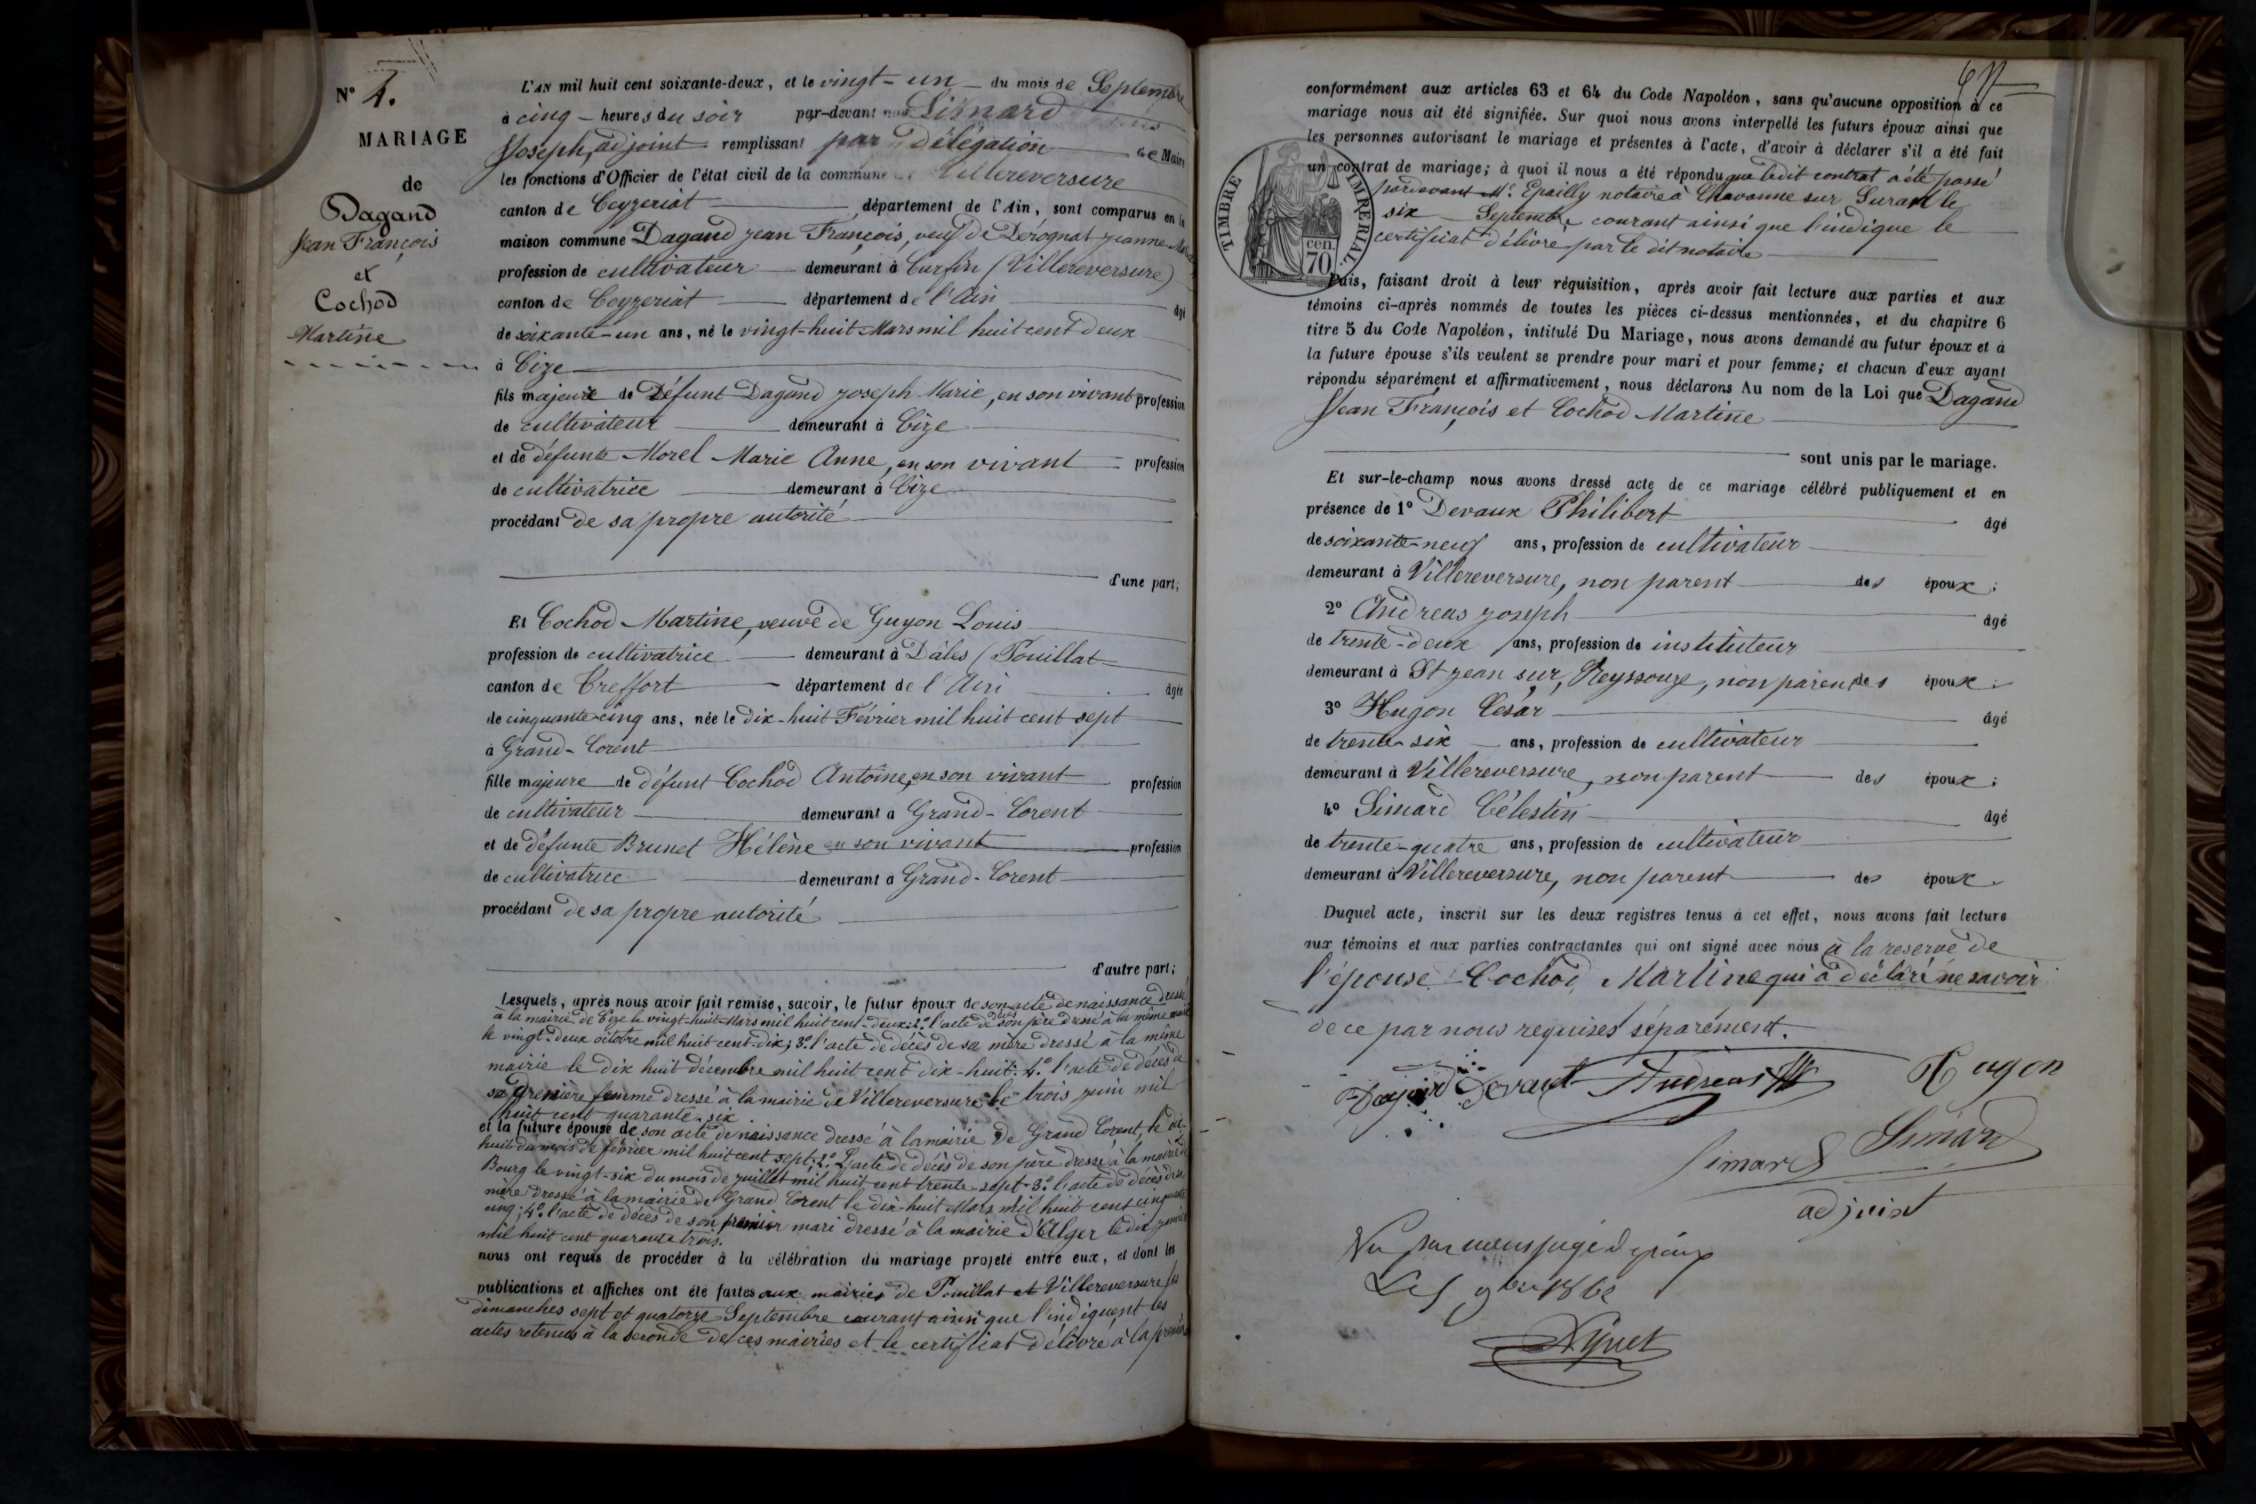 N° 4.
MARIAGE
de
Dagand
Jean François
et
Cochod
Martine
L'AN mil huit cent soixante-deux, et le vingt-un du mois de Septembre
à cinq heures du soir par-devant nous Simard
Joseph, adjoint remplissant par délégation de Maire
les fonctions d'Officier de l'état civil de la commune de Villereversure
canton de Ceyzeriat, département de l'Ain, sont comparus en la
maison commune Dagand Jean François, veuf de Derognat Jeanne
profession de cultivateur demeurant à Curfin (Villereversure)
canton de Ceyzeriat département de l'Ain âgé
de soixante-un ans, né le vingt-huit Mars mil huit cent deux
à Cize
fils majeur de Défunt Dagand Joseph Marie, en son vivant profession
de cultivateur demeurant à Cize
et de défunte Morel Marie Anne, en son vivant profession
de cultivatrice demeurant à Cize
procédant de sa propre autorité
d'une part;
Et Cochod Martine, veuve de Guyon Louis
profession de cultivatrice demeurant à Dàles (Pouillat
canton de Treffort département de l'Ain âgée
de cinquante-cinq ans, née le dix-huit Février mil huit cent sept
à Grand-Corent
fille majeure de défunt Cochod Antoine, en son vivant profession
de cultivateur demeurant à Grand-Corent
et de défunte Brunet Hélène en son vivant profession
de cultivatrice demeurant à Grand-Corent
procédant de sa propre autorité
d'autre part;
Lesquels, après nous avoir fait remise, savoir, le futur époux de son acte de naissance dressé
à la mairie de Cize le vingt-huit Mars mil huit cent deux; 2° l'acte de décès de son père dressé à la même mairie
le vingt-deux octobre mil huit cent dix; 3° l'acte de décès de sa mère dressé à la même
mairie le dix huit décembre mil huit cent dix-huit. 4° l'acte de décès de
sa première femme dressé à la mairie de Villereversure le trois juin mil
huit cent quarante-six
et la future épouse de son acte de naissance dressé à la mairie de Grand Corent, le dix-
huit du mois de février mil huit cent sept; 2° L'acte de décès de son père dressé à la mairie de
Bourg le vingt-six du mois de juillet mil huit cent trente-sept 3° l'acte de décès de sa
mère dressé à la mairie de Grand Corent le dix-huit Mars mil huit cent cinquante
cinq; 4° l'acte de décès de son premier mari dressé à la mairie d'Alger le dix janvier
mil huit cent quarante trois.
nous ont requis de procéder à la célébration du mariage projeté entre eux, et dont les
publications et affiches ont été faites aux mairies de Pouillat et Villereversure les
dimanches sept et quatorze Septembre courant ainsi que l'indiquent les
actes retenus à la seconde de ces mairies et le certificat délivré à la première
conformément aux articles 63 et 64 du Code Napoléon, sans qu'aucune opposition à ce
mariage nous ait été signifiée. Sur quoi nous avons interpellé les futurs époux ainsi que
les personnes autorisant le mariage et présentes à l'acte, d'avoir à déclarer s'il a été fait
un contrat de mariage; à quoi il nous a été répondu que ledit contrat a été passé
pardevant Me Epailly notaire à Chavanne sur Suran le
six Septembre courant ainsi que l'indique le
certificat délivré par le dit notaire
TIMBRE IMPERIAL.
cen.
70
Puis, faisant droit à leur réquisition, après avoir fait lecture aux parties et aux
témoins ci-après nommés de toutes les pièces ci-dessus mentionnées, et du chapitre 6
titre 5 du Code Napoléon, intitulé Du Mariage, nous avons demandé au futur époux et à
la future épouse s'ils veulent se prendre pour mari et pour femme; et chacun d'eux ayant
répondu séparément et affirmativement, nous déclarons Au nom de la Loi que Dagand
Jean François et Cochod Martine
sont unis par le mariage.
Et sur-le-champ nous avons dressé acte de ce mariage célébré publiquement et en
présence de 1° Devaux Philibert âgé
de soixante-neuf ans, profession de cultivateur
demeurant à Villereversure, non parent des époux;
2° Andreas Joseph âgé
de trente-deux ans, profession de instituteur
demeurant à St Jean sur Reyssouze, non parent des époux;
3° Hugon César âgé
de trente-six ans, profession de cultivateur
demeurant à Villereversure, non parent des époux;
4° Simard Célestin âgé
de trente-quatre ans, profession de cultivateur
demeurant à Villereversure, non parent des époux.
Duquel acte, inscrit sur les deux registres tenus à cet effet, nous avons fait lecture
aux témoins et aux parties contractantes qui ont signé avec nous à la reserve de
l'épouse Cochod Martine qui a déclaré ne savoir
de ce par nous requises séparément.
Dagand Devaux Andreas Hugon
Simard Simard
adjoint
Vu par nous juge de paix
Les 9bre 1862